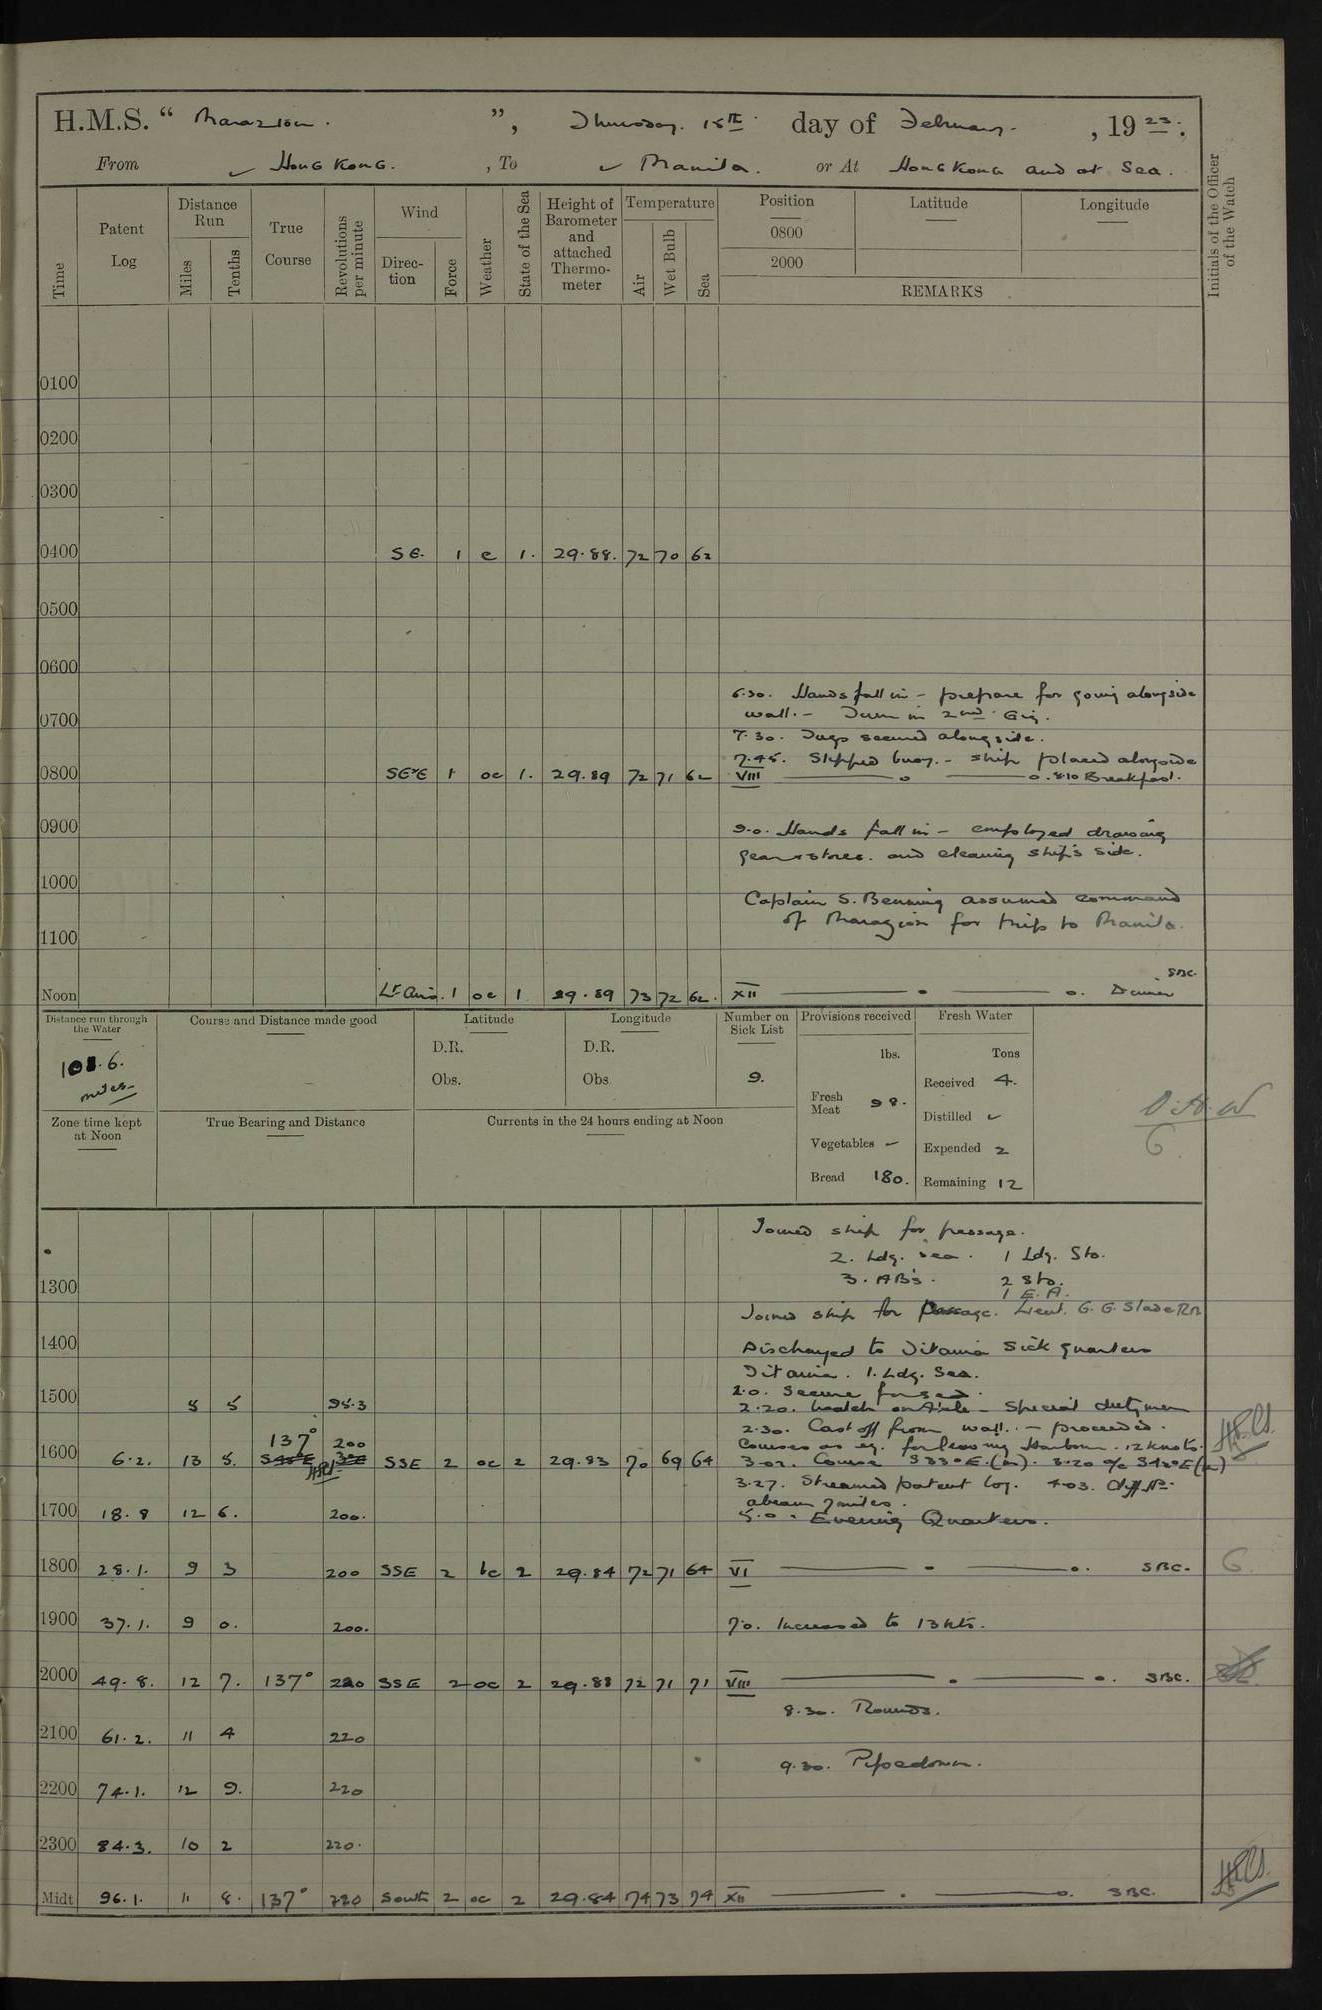 H.M.S. “ Marazion. ”, Thursday. 15th day of February. , 19 23.
From ✓ Hong Kong. , To ✓ Manila. or At Hong Kong and at Sea.
Time
Patent Log
Distance Run
Miles
Tenths
True Course
Revolutions per minute
Wind
Direction
Force
Weather
State of the Sea
Height of Barometer and attached Thermometer
Temperature
Air
Wet Bulb
Sea
Position
0800
2000
Latitude
Longitude
REMARKS
Initials of the Officer of the Watch
0100
0200
0300
0400 SE. 1 c 1. 29.88. 72 70 62
0500
0600
6.30. Hands fall in – prepare for going alongside
0700 wall. – Turn in 2nd Gig.
7.30. Tugs secured alongside.
7.45. Slipped buoy. – ship placed alongside
0800 SE'E 1 oc 1. 29.89 72 71 62 VIII ——o ——o. 8.10 Breakfast.
0900 9.0. Hands fall in – employed drawing
gear & stores. and cleaning ship's side.
1000
Captain S. Benning assumed command
of Marazion for trip to Manila.
1100
SBC.
Noon Lt airs. 1 oc 1 29.89 73 72 62. XII —— . —— o. Dinner
Distance run through the Water
108.6.
miles
Course and Distance made good
Latitude
D.R.
Obs.
Longitude
D.R.
Obs.
Number on Sick List
9.
Provisions received
lbs.
Fresh Meat 98.
Vegetables –
Bread 180.
Fresh Water
Tons
Received 4.
Distilled ✓
Expended 2
Remaining 12
Zone time kept at Noon
True Bearing and Distance
Currents in the 24 hours ending at Noon
Joined ship for passage.
2. Ldg. Sea. 1 Ldg. Sto.
1300 3. AB's. 2 Sto.
1 E.A.
Joined ship for Passage. Lieut. G. G. Slade RN
1400 Discharged to Titania Sick quarters
Titania. 1. Ldg. Sea.
2.0. Secure for sea.
1500 5 5 95.3 2.20. Special dutymen
2.30. Cast off from wall. – proceeded.
137° 200 Courses as req. for leaving Harbour. 12 knots.
1600 6.2. 13 5. SSE 2 oc 2 29.83 70 69 64 3.02. Course S33°E.(m). 3.20 a/c S42°E(m)
3.27. Streamed patent log. 4.03.
abeam 7 miles.
1700 18.8 12 6. 200. 5.0. Evening Quarters.
1800 28.1. 9 3 200 SSE 2 bc 2 29.84 72 71 64 VI —— . —— o. SBC.
1900 37.1. 9 0. 200. 7.0. Increased to 13 kts.
2000 49.8. 12 7. 137° 220 SSE 2 oc 2 29.88 72 71 71 VIII —— . —— o. SBC.
8.30. Rounds.
2100 61.2. 11 4 220
9.30. Pipedown.
2200 74.1. 12 9. 220
2300 84.3. 10 2 220.
Midt 96.1. 11 8. 137° 220 South 2 oc 2 29.84 74 73 74 XII —— . —— o. SBC.